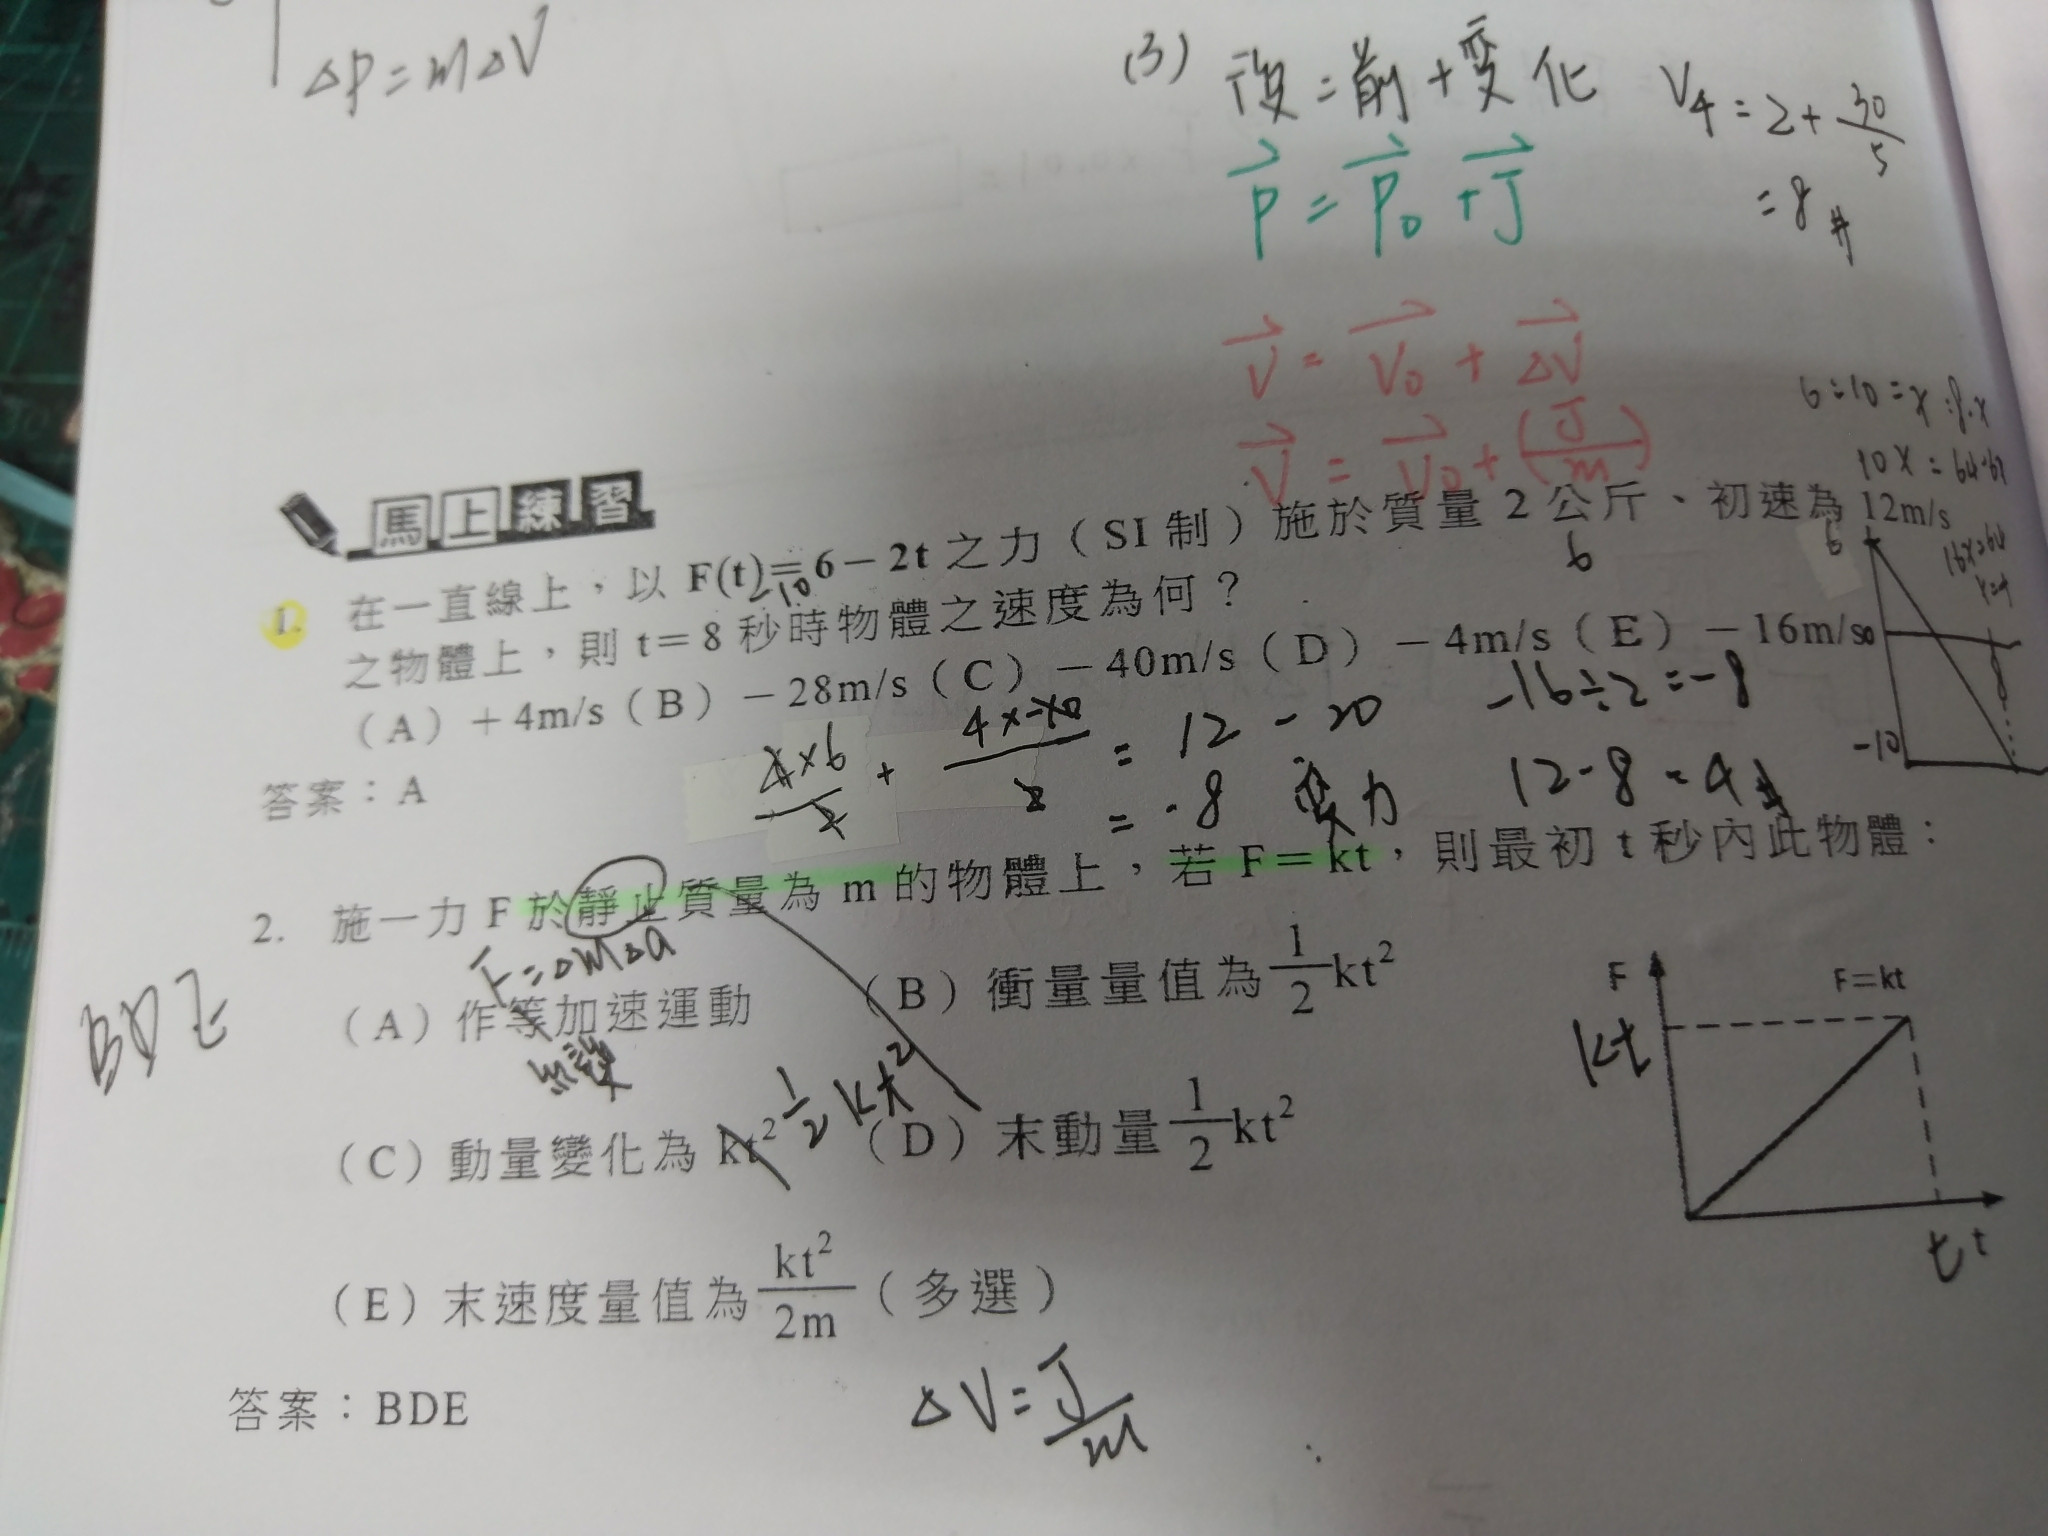 ΔP = mΔV
(3) 後 = 前 + 變化
V₄ = 2 + 30/5
= 8 #
P = P₀ + J
V = V₀ + ΔV
V = V₀ + (J/m)
6:10 = x:8-x
馬上練習
1. 在一直線上，以 F(t)=6－2t 之力（SI 制）施於質量 2 公斤、初速為 12m/s
-10
6
6
之物體上，則 t＝8 秒時物體之速度為何？
（A）＋4m/s（B）－28m/s（C）－40m/s（D）－4m/s（E）－16m/s
0
8
-10
-16÷2 = -8
= 12 - 20
答案：A
= -8
變力
12-8 = 4 #
2. 施一力 F 於靜止質量為 m 的物體上，若 F＝kt，則最初 t 秒內此物體：
（A）作等加速運動
（B）衝量量值為 1/2 kt²
BDE
（C）動量變化為 kt² 1/2 kt²
（D）末動量 1/2 kt²
（E）末速度量值為 kt²/2m（多選）
F
F=kt
kt
t
t
答案：BDE
ΔV = J/m